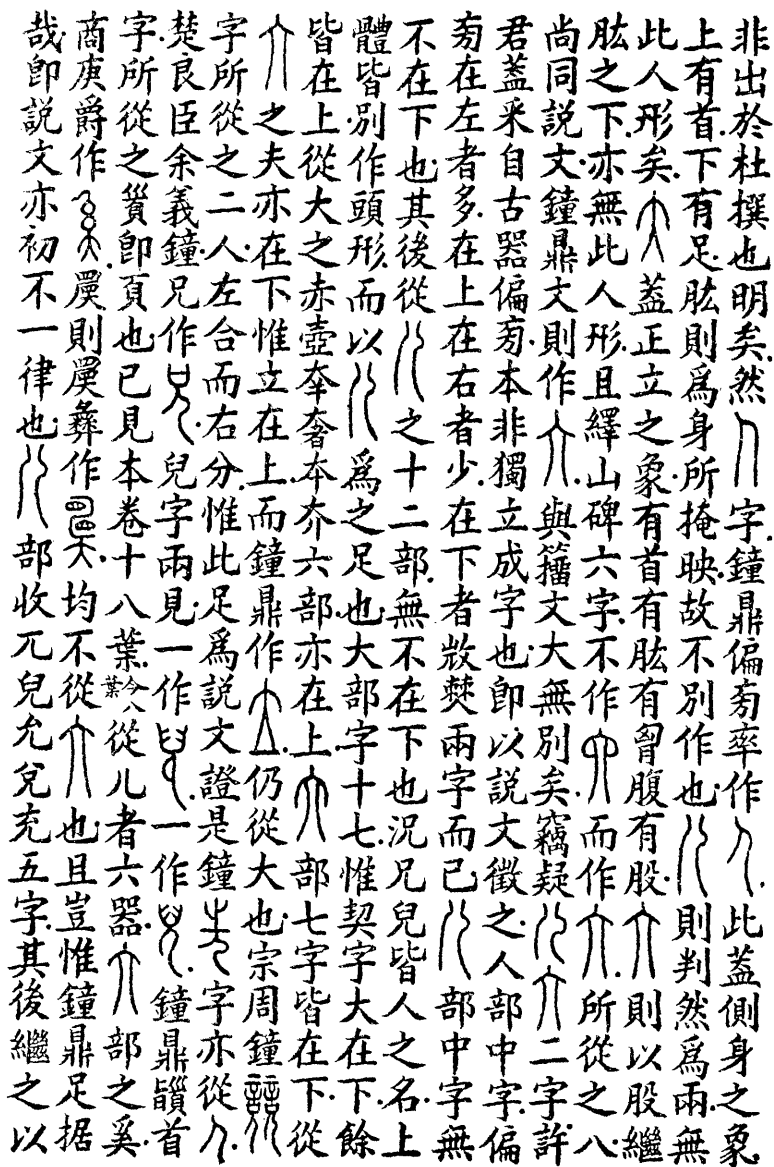 非出於杜撰也明矣然字鐘鼎偏㫄率作此蓋側身之象
上有首下有足肱則爲身所掩映故不別作也則判然爲兩無
此人形矣蓋正立之象有首有肱有胷腹有股則以股繼
肱之下亦無此人形且繹山碑六字不作而作所從之八
尚同説文鐘鼎文則作與籒文大無別矣竊疑二字許
君蓋采自古器偏㫄本非獨立成字也卽以説文徵之人部中字偏
㫄在左者多在上在右者少在下者㪚僰兩字而已部中字無
不在下也其後從之十二部無不在下也況兄兒皆人之名上
體皆別作頭形而以爲之足也大部字十七惟契字大在下餘
皆在上從大之赤壺夲奢夲夰六部亦在上部七字皆在下從
之夫亦在下惟立在上而鐘鼎作仍從大也宗周鐘
字所從之二人左合而右分惟此足爲説文證是鐘字亦從
楚良臣余義鐘兄作兒字兩見一作一作鐘鼎𩠐首
字所從之𩑋卽頁也已見本卷十八葉今八葉從儿者六器部之奚
商庚爵作㚖則㚖彝作均不從也且豈惟鐘鼎足據
哉卽説文亦初不一律也部收兀兒允兌充五字其後繼之以